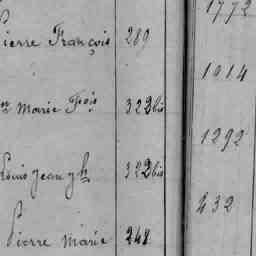 1772
Pierre François 289
1014
n Marie Fois 322bis
1292
Louis Jean Jh 322bis
432
Pierre Marie 248